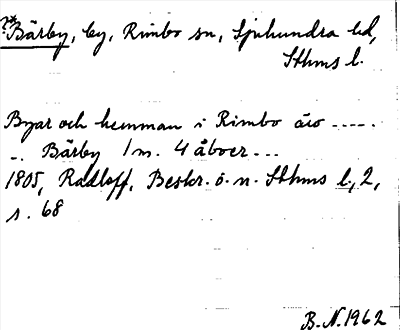 ?* Bärby, by, Rimbo sn, Sjuhundra hd,
Sthms l.
Byar och hemman i Rimbo äro -----
-. Bärby 1 m. 4 åboer ---
1805, Radloff, Beskr. ö. n. Sthms l., 2,
s. 68
B. N. 1962